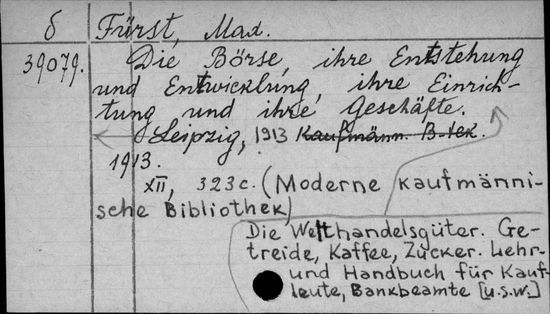 б Fürst, Max.
39079. Die Börse, ihre Entstehung
und Entwicklung, ihre Einrich-
tung und ihre Geschäfte.
Leipzig, 1913 Kaufmänn. B-tek.
1913.
XII, 323c. (Moderne kaufmänni-
sche Bibliothek)
Die Welthandelsgüter. Ge-
treide, Kaffee, Zucker. Lehr-
und Handbuch für Kauf-
leute, Bankbeamte [u.s.w.]